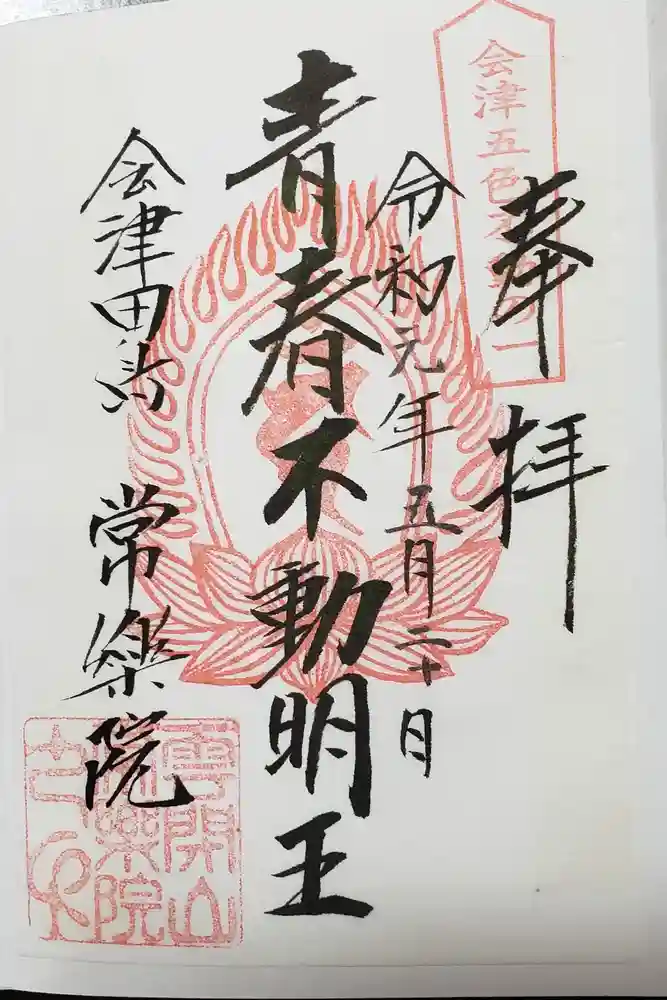 会津五色不動の一
奉拝
令和元年五月二十日
青春不動明王
会津田島 常樂院
雲開山
常樂院